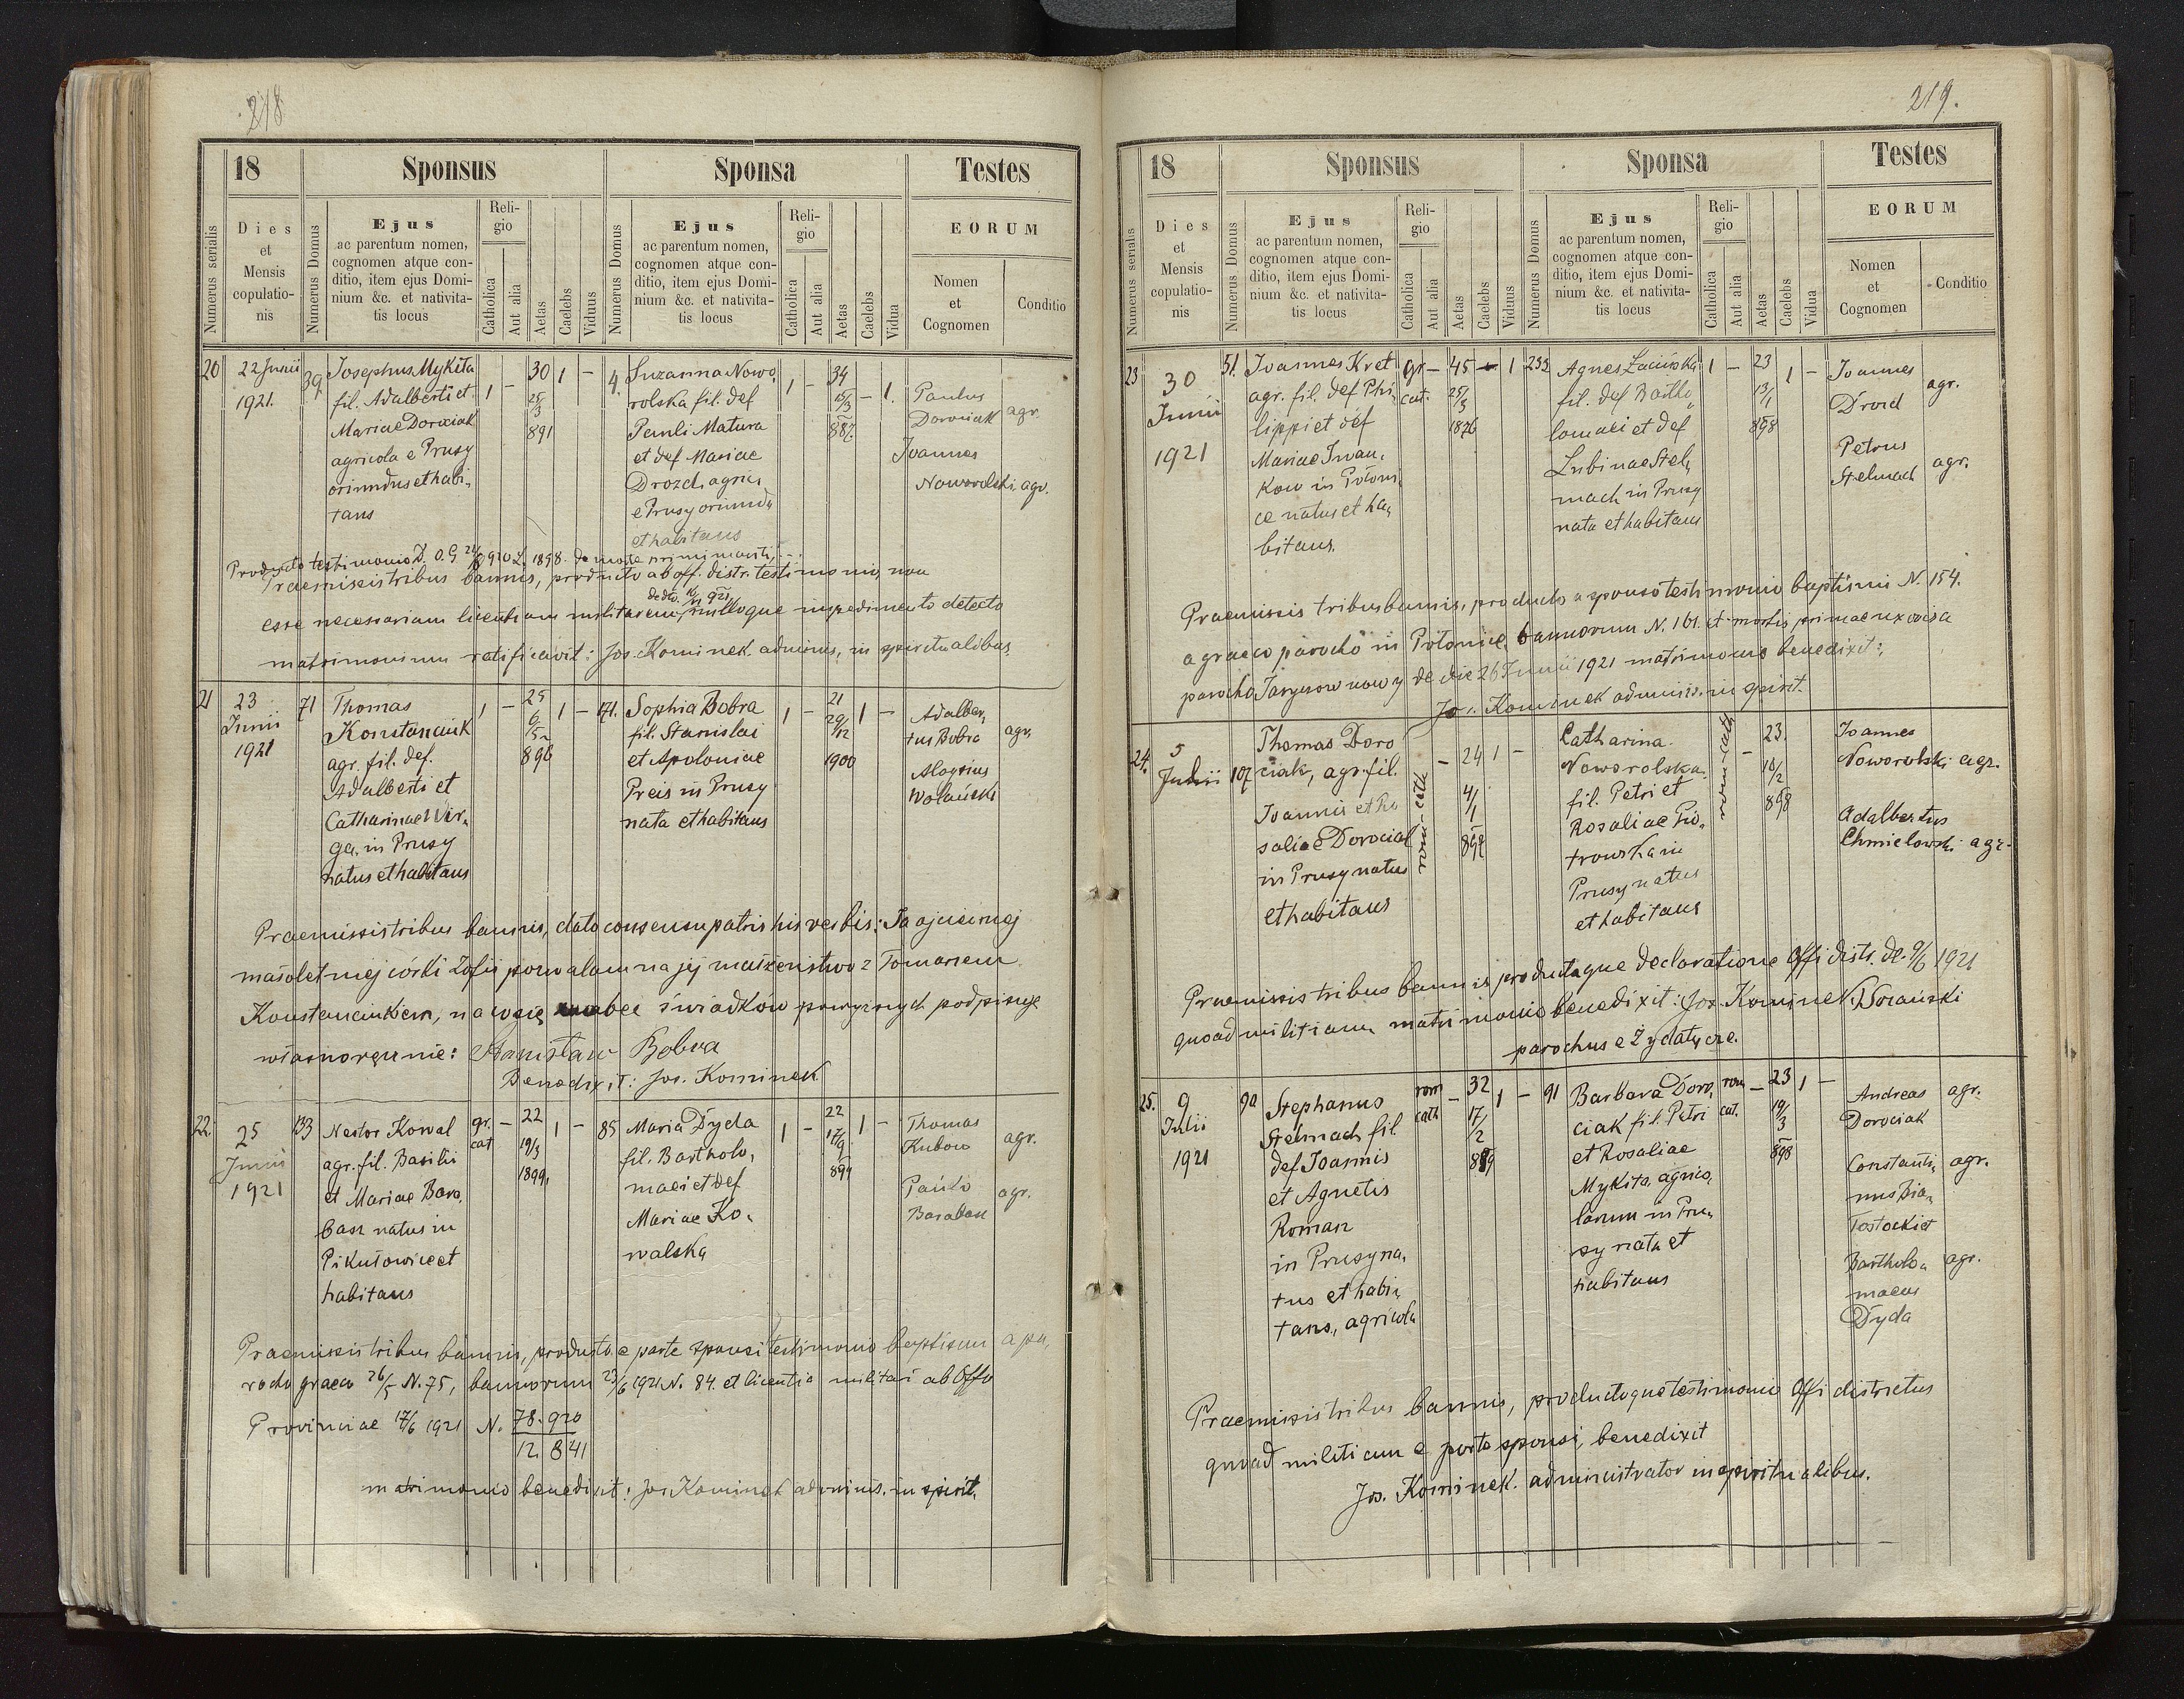 218
18 Sponsus Sponsa Testes
Numerus serialis
Dies
et
Mensis
copulatio-
nis
Numerus Domus
Ejus
ac parentum nomen,
cognomen atque con-
ditio, item ejus Domi-
nium &c. et nativita-
tis locus
Reli-
gio
Catholica
Aut alia
Aetas
Caelebs
Viduus
Numerus Domus
Ejus
ac parentum nomen,
cognomen atque con-
ditio, item ejus Domi-
nium &c. et nativita-
tis locus
Reli-
gio
Catholica
Aut alia
Aetas
Caelebs
Vidua
EORUM
Nomen
et
Cognomen
Conditio
20
22 Junii
1921.
39
Josephus Mykita
fil. Adalberti et
Mariae Dorociak
agricola e Prusy
oriundus et habi„
tans
1
–
30
25/3
891
1
–
4.
Suzanna Nowo„
rolska fil. def
Pauli Matura
et def Mariae
Drozd agric„
e Prusy oriunda
et habitans
1
–
34
15/3
887.
–
1.
Paulus
Dorociak agr.
Joannes
Noworolski agr.
Producto testimonio D. O. G. 1898 de morte primi mariti
Praemissis tribus bannis, producto ab off. distr. testimonio, non
dedto. 921
esse necessariam licentiam militarem, nulloque impedimento detecto
matrimonium ratificavit: Jos. Kominek adminis, in spiritualibus
21
23
Junii
1921
71
Thomas
Konstanciuk
agr. fil. def.
Adalberti et
Catharinae Wir„
ga, in Prusy
natus et habitans
1
–
25
896
1
–
171.
Sophia Bobra
fil. Stanislai
et Apoloniae
Preis in Prusy
nata et habitans
1
–
21
29/12
1900
1
–
Adalber„
tus Bobra agr.
Aloysius
Wolański
Praemissis tribus bannis, dato consensu patris his verbis: Ja ojciec mej
małoletniej córki Zofii pozwalam na jej małżeństwo z Tomaszem
Konstanciukiem, na co się wobec świadków powyższych podpisuję
własnoręcznie: Stanisław Bobra
Benedixit: Jos. Kominek
22.
25
Junii
1921
133
Nestor Kowal
agr. fil. Basilii
et Mariae Bara„
basz natus in
Pikułowice et
habitans
gr.
cat
–
22
19/3
1899,
1
–
85
Maria Dyda
fil. Bartholo„
maei et def
Mariae Ko„
walska
1
–
22
17/9
899
1
–
Thomas
Kubow agr.
Pańko
Baraban agr.
Praemissis tribus bannis, producto e parte sponsi testimonio baptisum a pa„
rocho graeco 26/5 N. 75, bannorum 23/6 1921 N. 84. et licentia militari ab Offo
Provinciae 17/6 1921 N. 78.920
12 841
matrimonio benedixit: Jos. Kominek adminis. in spirit.
219.
18 Sponsus Sponsa Testes
Numerus serialis
Dies
et
Mensis
copulatio-
nis
Numerus Domus
Ejus
ac parentum nomen,
cognomen atque con-
ditio, item ejus Domi-
nium &c. et nativita-
tis locus
Reli-
gio
Catholica
Aut alia
Aetas
Caelebs
Viduus
Numerus Domus
Ejus
ac parentum nomen,
cognomen atque con-
ditio, item ejus Domi-
nium &c. et nativita-
tis locus
Reli-
gio
Catholica
Aut alia
Aetas
Caelebs
Vidua
EORUM
Nomen
et
Cognomen
Conditio
23
30
Junii
1921
51.
Joannes Kret
agr. fil. def Phi„
lippi et def
Mariae Iwan„
kow in Połoni„
ce natus et ha„
bitans.
gr
cat.
–
45
25/3
1876
–
1
232
Agnes Lacińska
fil. def Bartho„
lomaei et def
Lubinae Stel„
mach in Prusy
nata et habitans
1
–
23
13/1
898
1
–
Joannes
Drozd agr.
Petrus
Stelmach agr.
Praemissis tribus bannis, producto a sponso testimonio baptismi N. 154.
a graeco parocho in Połonice, bannorum N. 161. et mortis primae uxoris a
parocho Jaryczow nowy de die 26 Junii 1921 matrimonio benedixit:
Jos. Kominek adminis. in spirit.
24.
5
Julii
107
Thomas Doro
ciak, agr. fil.
Joannis et Ro
saliae Dorociak
in Prusy natus
et habitans
rom-cath
–
24
4/1
1
–
Catharina
Noworolska
fil. Petri et
Rosaliae Pio„
trowska in
Prusy natus
et habitans
rom-cath
–
23.
10/2
898
Joannes
Noworolski agr.
Adalbertus
Chmielowski agr.
Praemissis tribus bannis productaque declaratione Offi distr. de. 9/6 1921
quoad militiam matrimonio benedixit: Jos. Kominek
parochus e Żydatycze.
25.
9
Julii
1921
90
Stephanus
Stelmach fil.
def Joannis
et Agnetis
Roman
in Prusy na„
tus et habi„
tans, agricola
rom
cath
–
32
17/2
889
1
–
91
Barbara Doro„
ciak fil. Petri
et Rosaliae
Mykita, agrico„
larum in Pru„
sy nata et
habitans
rom
cat.
–
23
19/3
898
1
–
Andreas agr.
Dorociak
Constanti„ agr.
nus Bia„
Tostocki et
Bartholo„ agr.
maeus
Dyda
Praemissis tribus bannis, productoque testimonio Offi districtus
quoad militiam e parte sponsi, benedixit
Jos. Kominek. administrator in spiritualibus.